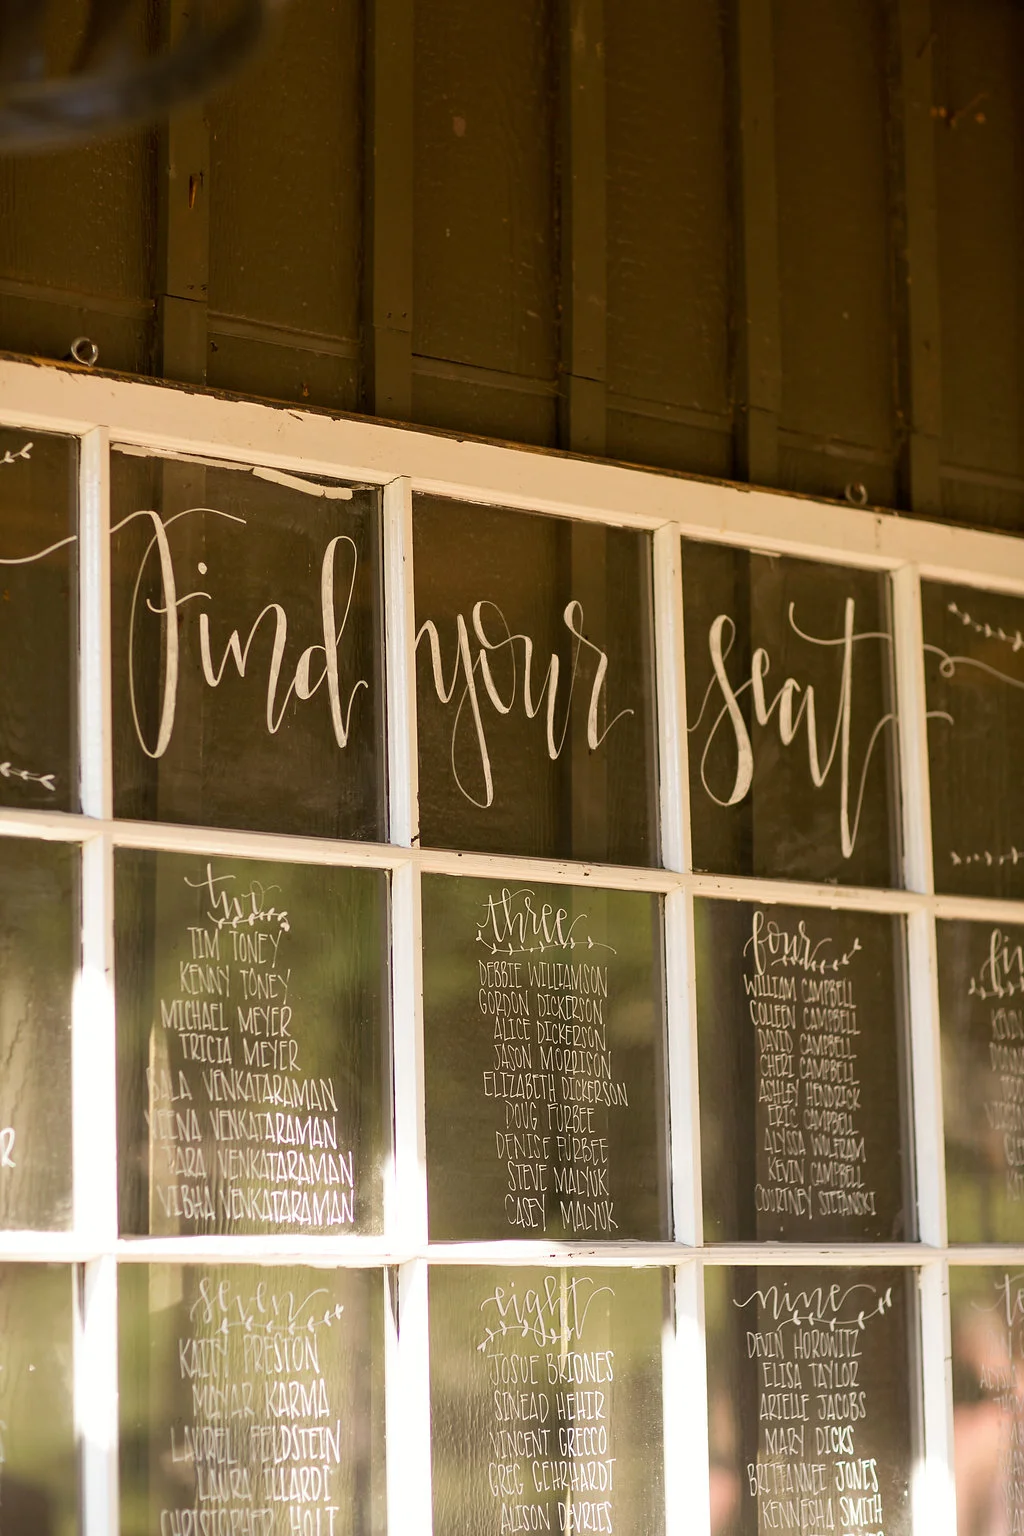 Find your seat
two
TIM TONEY
KENNY TONEY
MICHAEL MEYER
TRICIA MEYER
BALA VENKATARAMAN
VEENA VENKATARAMAN
TARA VENKATARAMAN
VIBHA VENKATARAMAN
three
DEBBIE WILLIAMSON
GORDON DICKERSON
ALICE DICKERSON
JASON MORRISON
ELIZABETH DICKERSON
DOUG FURBEE
DENISE FURBEE
STEVE MALYUK
CASEY MALYUK
four
WILLIAM CAMPBELL
COLLEEN CAMPBELL
DAVID CAMPBELL
CHERI CAMPBELL
ASHLEY HENDRICK
ERIC CAMPBELL
ALYSSA WOLFRAM
KEVIN CAMPBELL
COURTNEY STEFANSKI
seven
KAITY PRESTON
KARMA
LAUREL FELDSTEIN
LAURA ILLARDI
CHRISTOPHER HOLT
eight
JOSUE BRIONES
SINEAD HEHIR
VINCENT GRECCO
GREG GEHRHARDT
ALISON DEVRIES
nine
DEVIN HOROWITZ
ELISA TAYLOR
ARIELLE JACOBS
MARY DICKS
BRITTANNEE JONES
KENNESHA SMITH